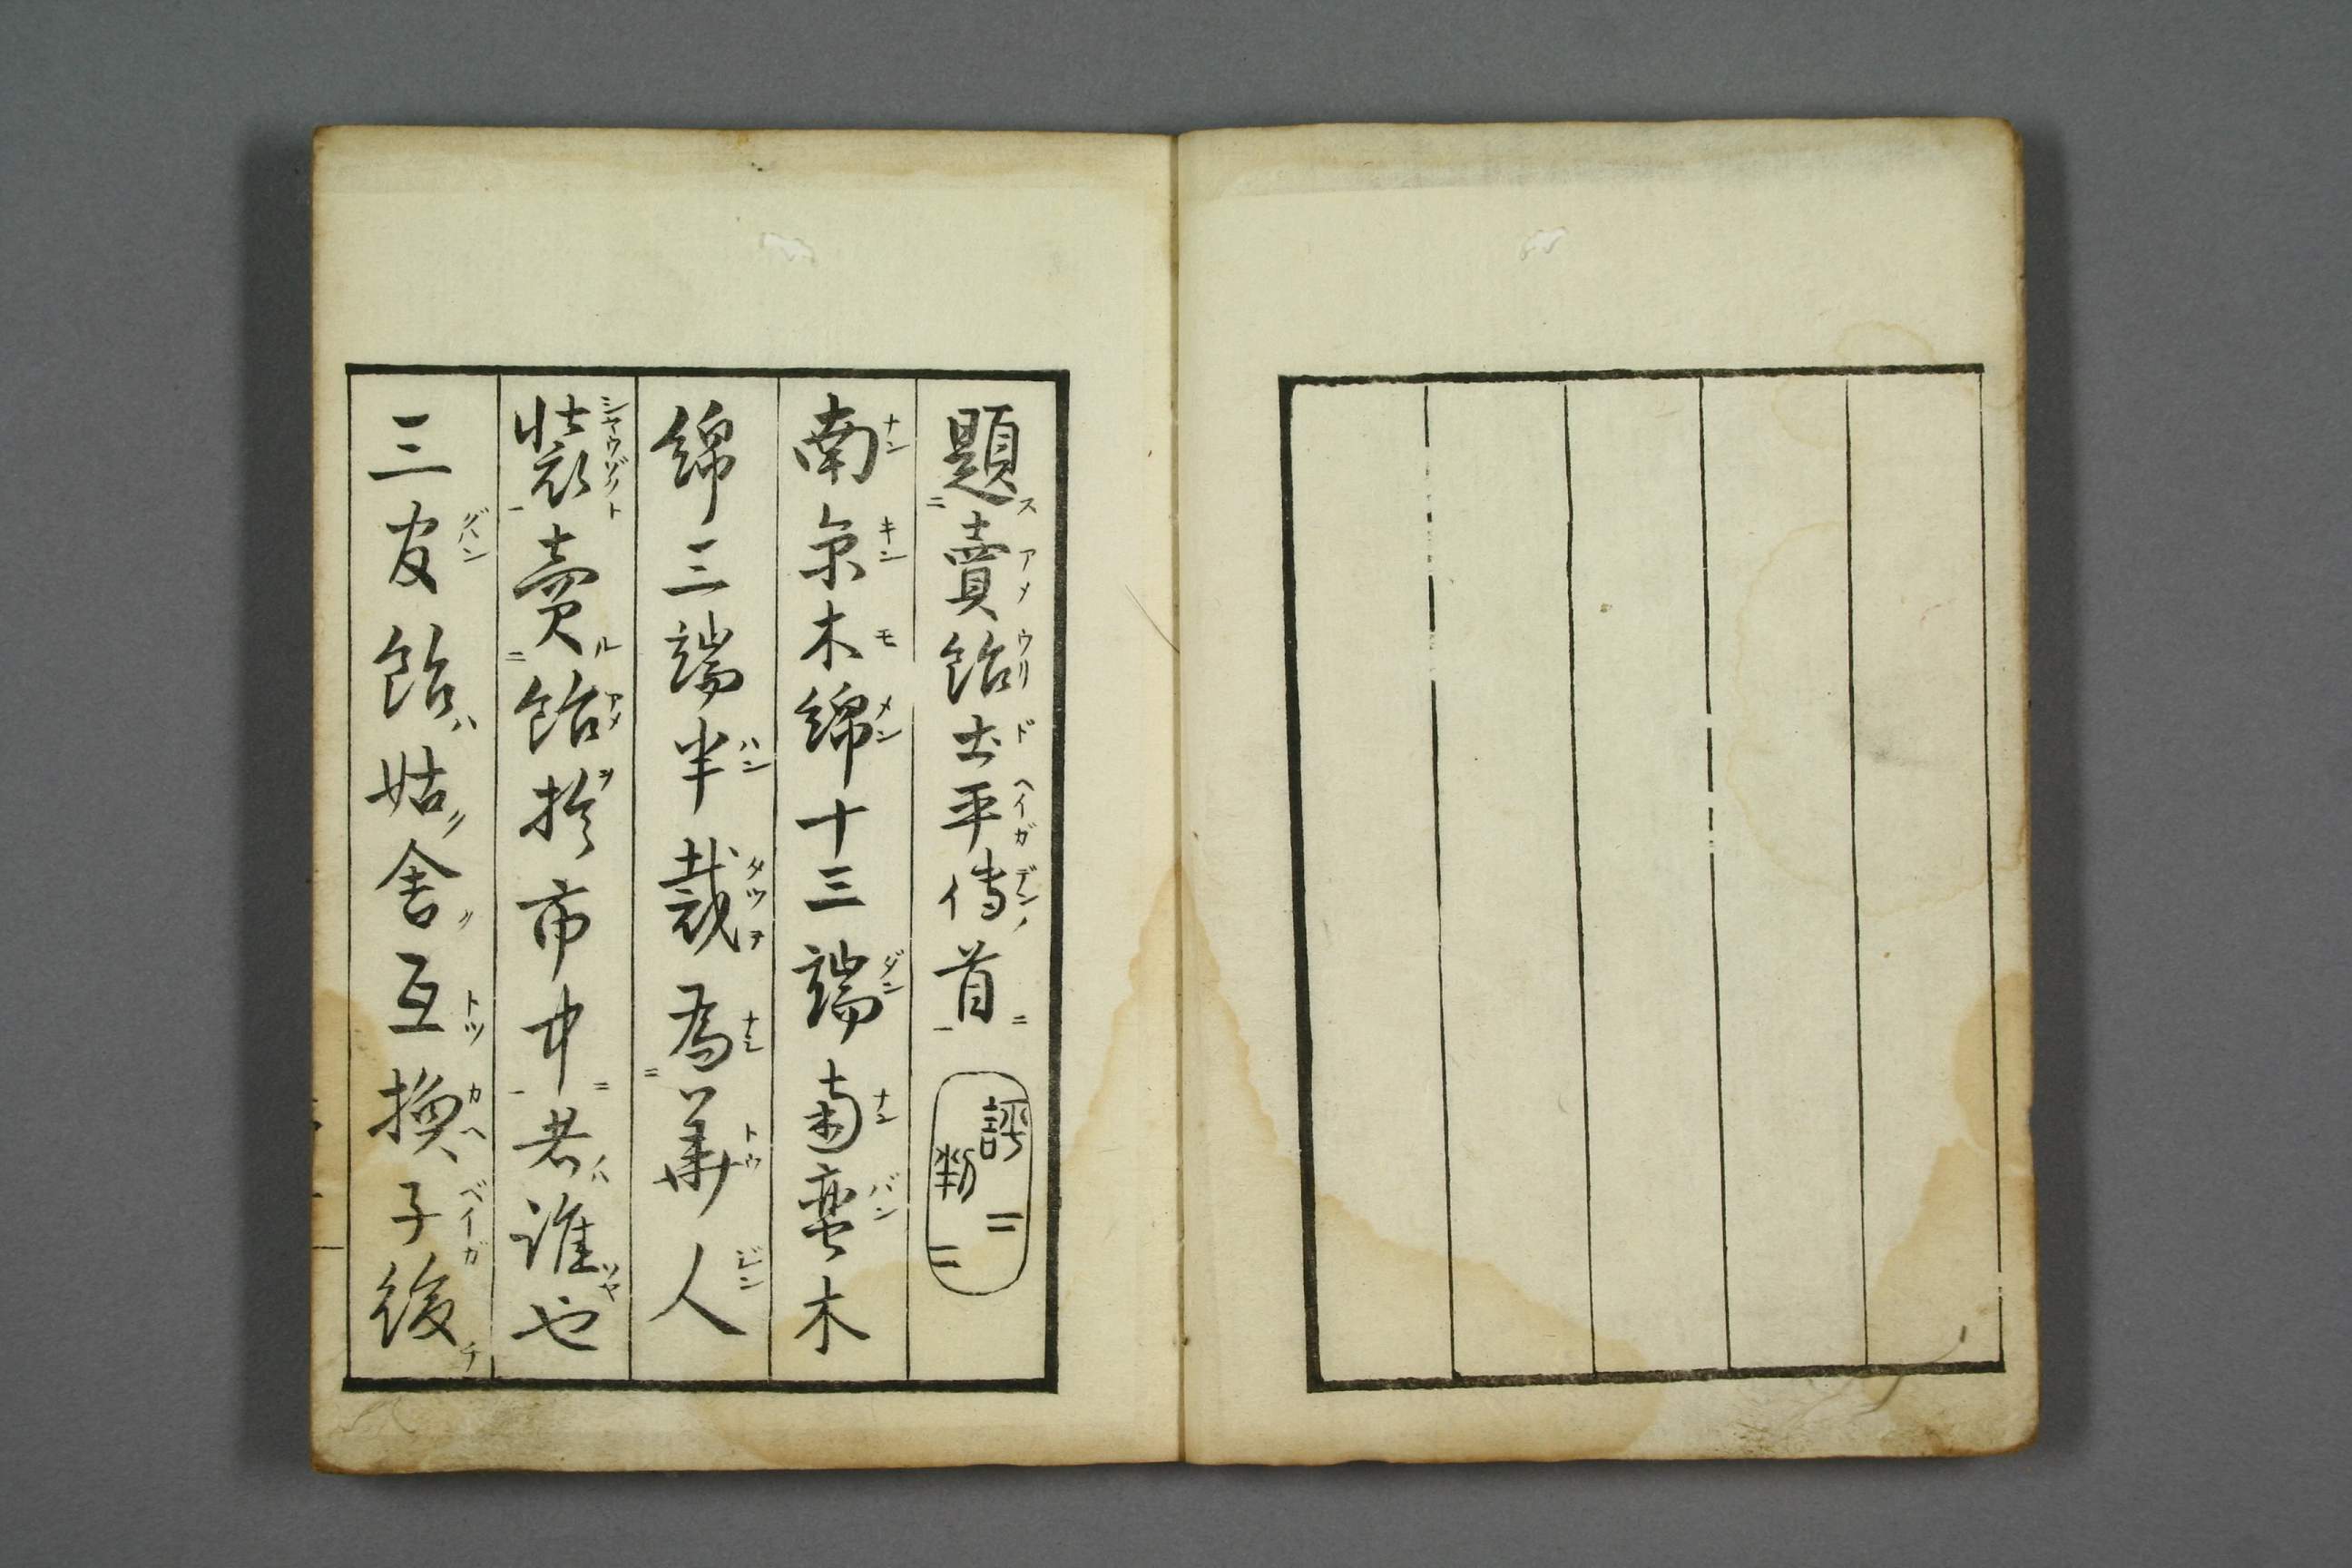 題賣飴土平傳首 評判
南京木綿十三端南蛮木
綿三端半裁為華人
裝賣飴於市中者誰也
三官飴姑舎互換子後